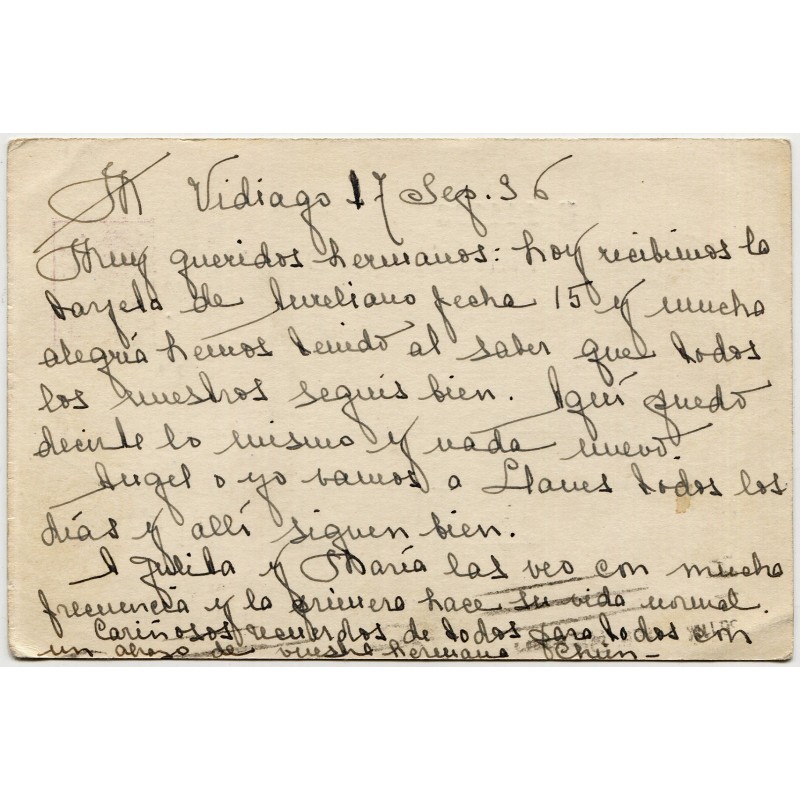 Vidiago 17 Sep. 36
Muy queridos hermanos: hoy recibimos la
tarjeta de Aureliano fecha 15 y mucha
alegría hemos tenido al saber que todos
los nuestros seguis bien. Aquí puedo
decirte lo mismo y nada nuevo.
Angel o yo vamos a Llanes todos los
días y allí siguen bien.
A Julita y María las veo con mucha
frecuencia y la primera hace su vida normal.
Cariñosos recuerdos de todos para todos con
un abrazo de vuestra hermana